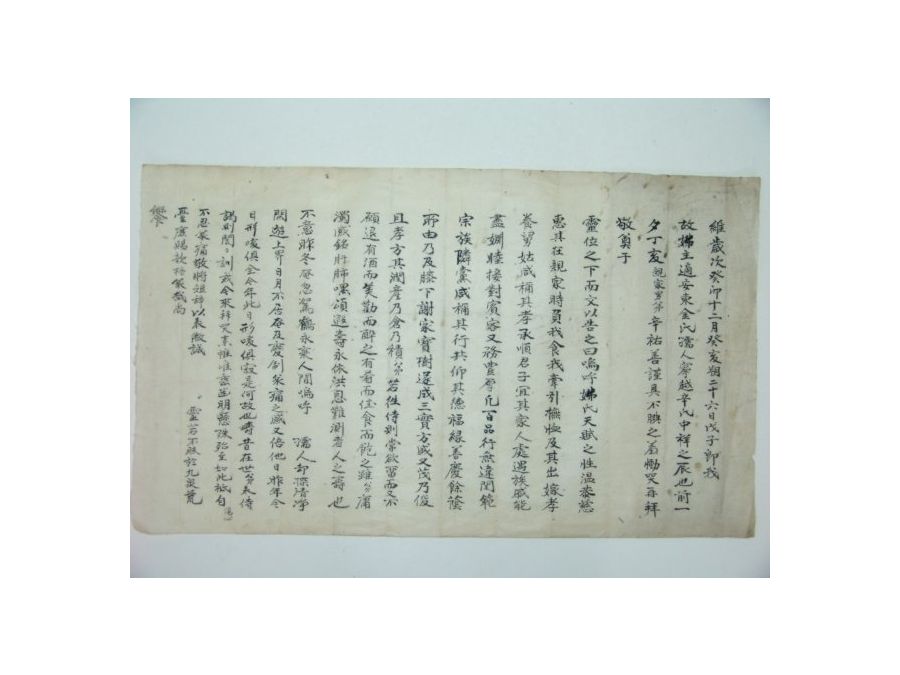 維歲次癸卯十二月癸亥朔二十六日戊子卽我
故姊主適安東金氏孺人寧越辛氏中祥之辰也前一
夕丁亥親家男弟辛祐善謹具不腆之羞慟哭再拜
敬奠于
靈位之下而文以告之曰嗚呼姊氏天賦之性溫恭慈
惠其在親家時負我食我牽引撫恤及其出嫁孝
養舅姑咸稱其孝承順君子宜其家人處遇族戚能
盡婣睦接對賓客又務豊厚凡百品行無違閨範
宗族隣黨咸稱其行共仰其德福緣善慶餘蔭
所由乃及膝下謝家寶樹遂成三實方盛又茂乃俊
且孝方其潤産乃倉乃積弟若往侍則常欲留而又不
願退有酒而笑勸而醉之有肴而佳食而飽之雖弟庸
濁感銘肝肺嘿頌遐壽永依洪恩難測者人之壽也
不意昨冬奄忽駕鶴永棄人間嗚呼 孺人却深清淨
閒遊上界日月不居存及變制哀痛之感又倍他日昨年今
日形唆俱全今年此日形唆俱寂是何故也疇昔在世弟来侍
謁則誾誾訓 今來拜哭 惟惟 幽明懸殊 至如此
不忍哀痛敬將短辭以表微誠 靈若不昧於九泉 
垂 賜歆格哀哉尙
饗